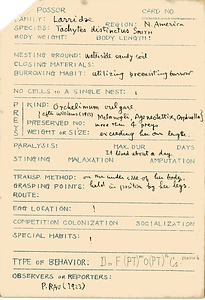 POSSOR CARD NO
FAMILY: Larridae REGION: N. America
SPECIES: Tachytes distinctus Smith
BODY WEIGHT: BODY LENGTH:
NESTING GROUND: waterside sandy soil
CLOSING MATERIALS:
BURROWING HABIT: utilizing preexisting burrow
NO CELLS IN A SINGLE NEST: 1
PREY KIND: Orchelimum vulgare
PRESERVED NO: more than 4 preys
WEIGHT OR SIZE: exceeding her own length.
PARALYSIS: MAX. DUR DAYS
It lived about a day.
STINGING MALAXATION AMPUTATION
TRANSP. METHOD: on the under side of her body.
GRASPING POINTS: held in position by her legs.
ROUTE:
EGG LOCATION: 1
COMPETITION COLONIZATION SOCIALIZATION
SPECIAL HABITS: 1
TYPE OF BEHAVIOR:
OBSERVERS OR REPORTERS:
P. RAU (1922)